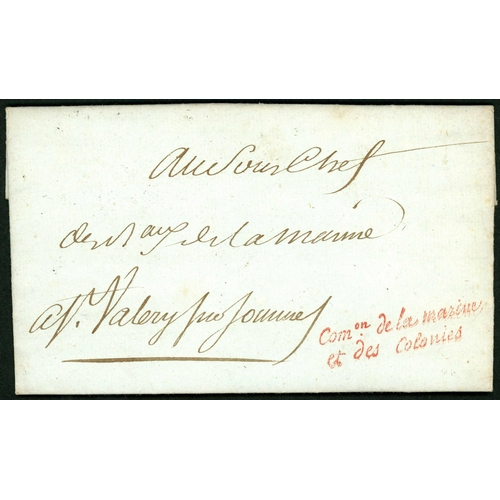 au Sous Chef
de la marine
a St. Valery sur Somme
Com^on de la marine
et des Colonies